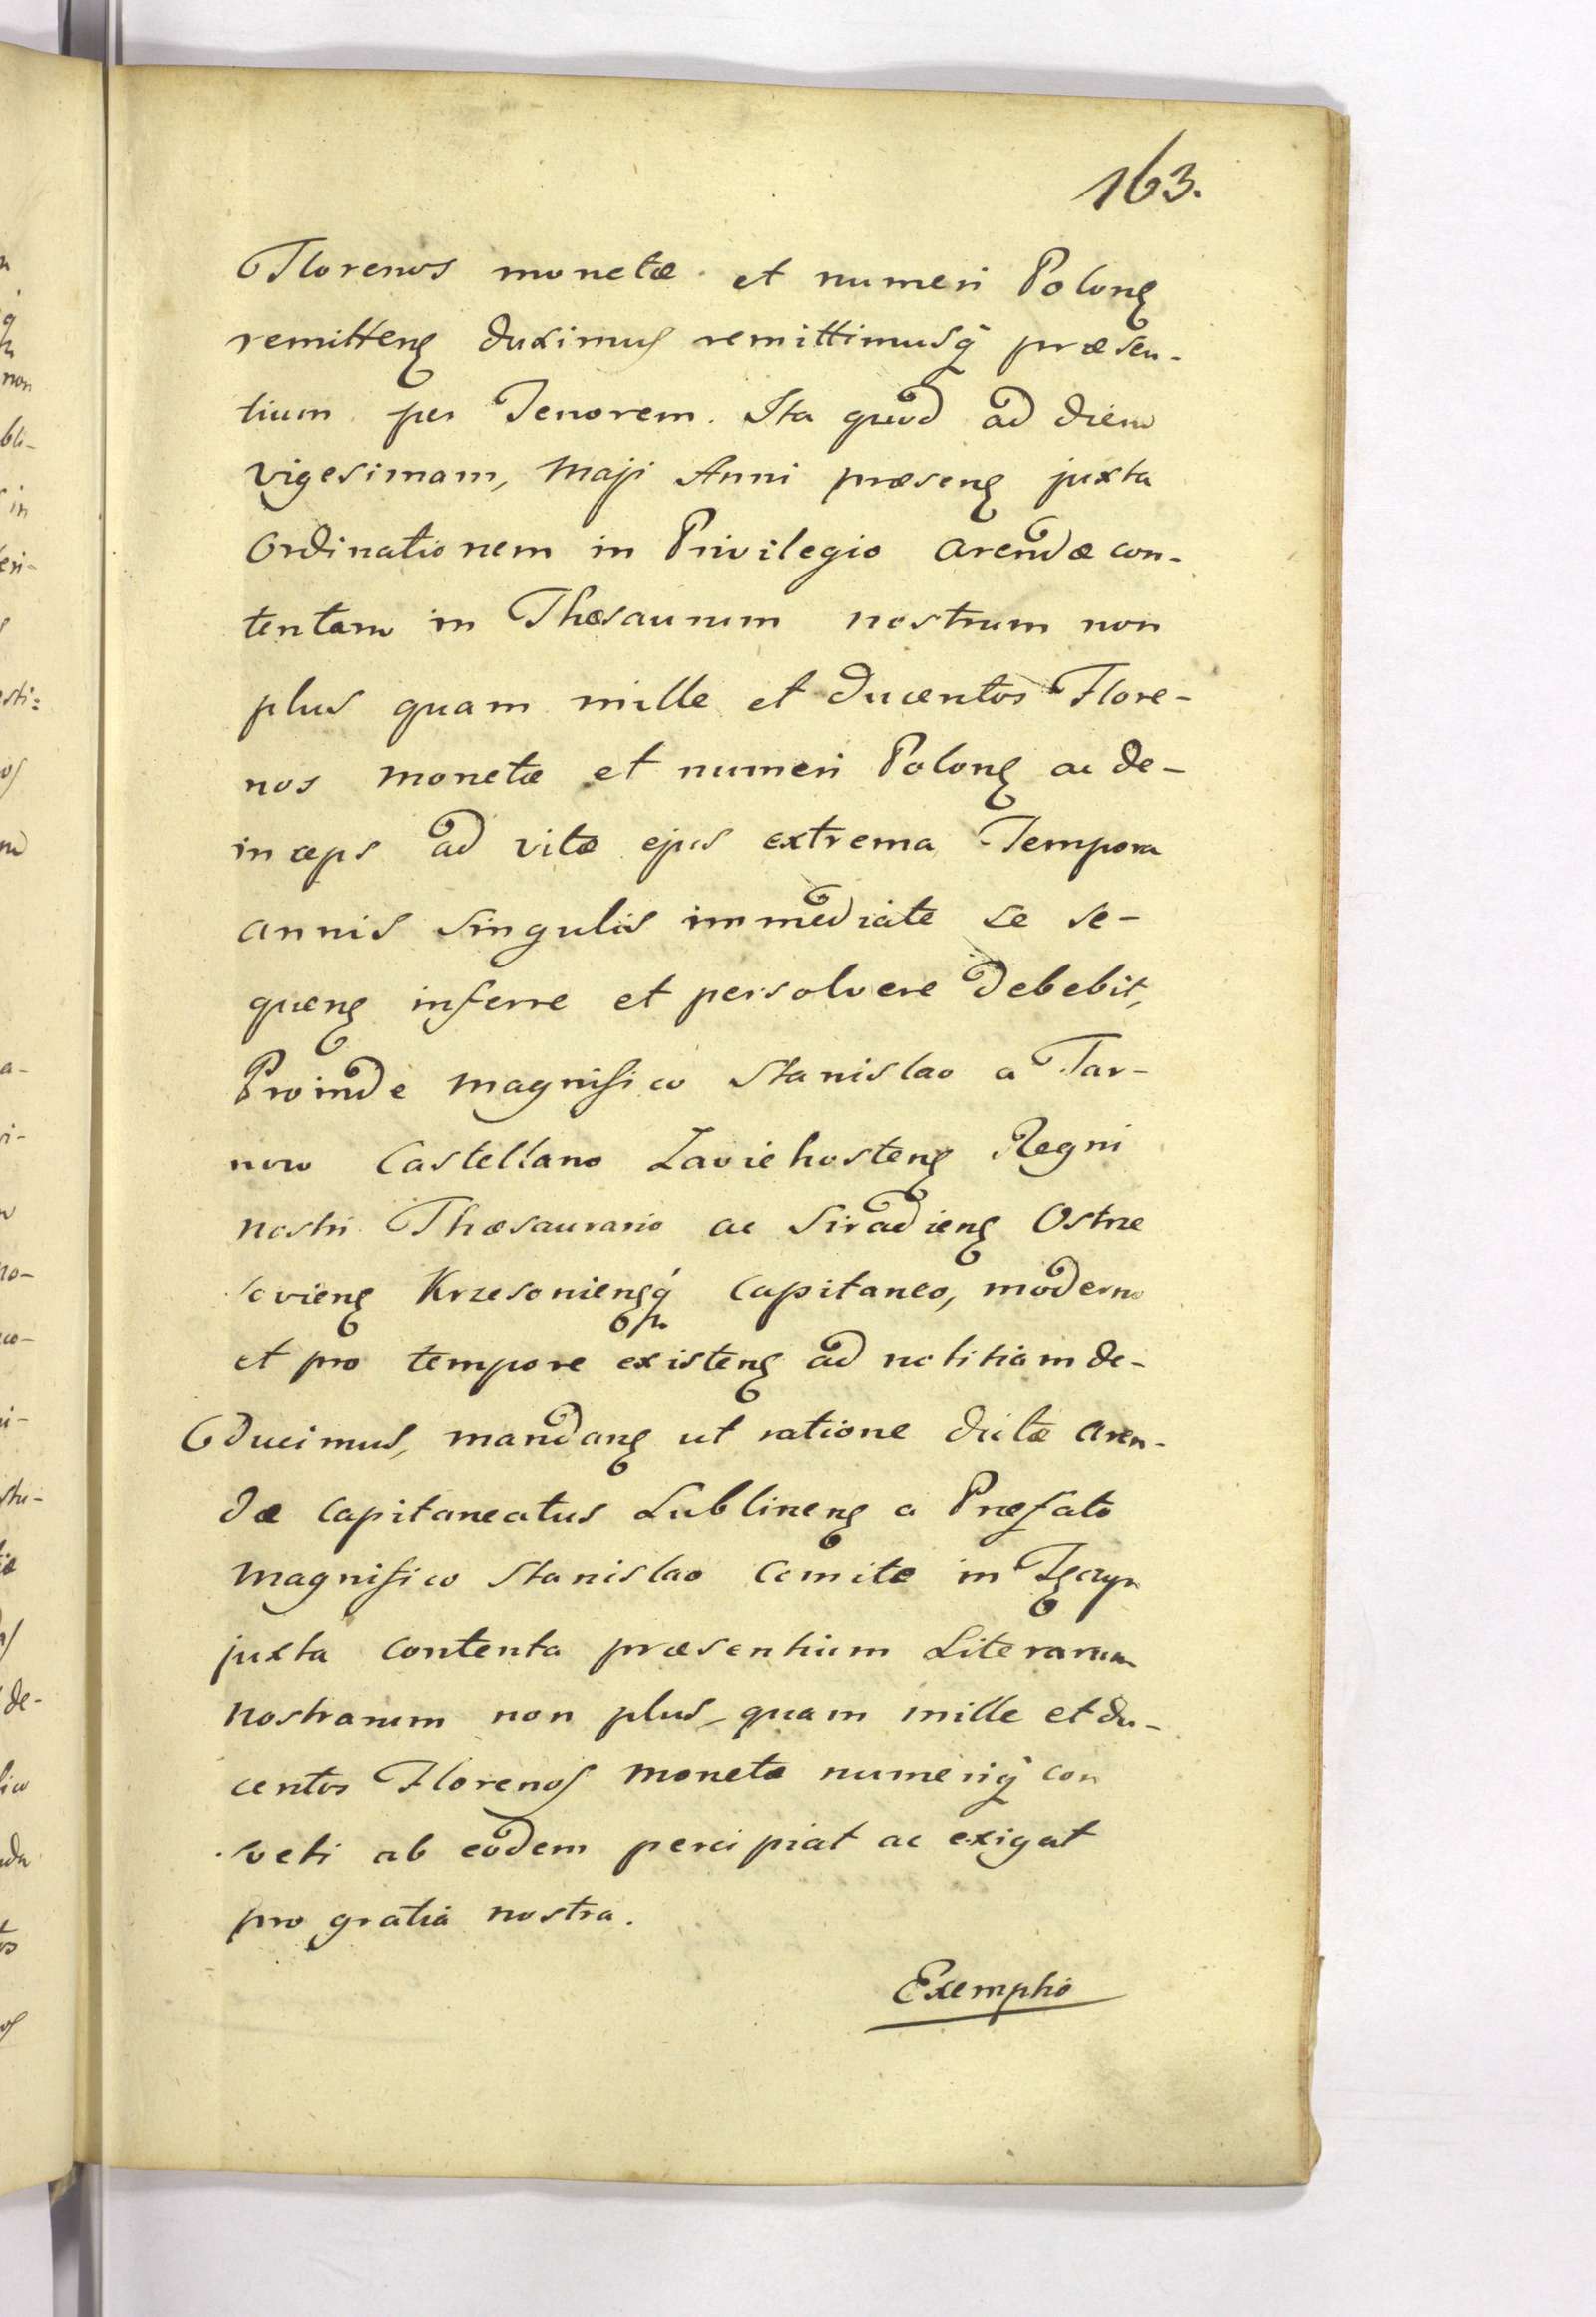 163.
Florenos monetæ et numeri Polonȩ
remittenȩ duximus remittimusq́ præsen-
tium per Tenorem. Ita quod ad diem
vigesimam, Maji Anni præsenȩ juxta
Ordinationem in Privilegio arendæ con-
tentam in Thesaurum nostrum non
plus quam mille et ducentos Flore-
nos monetæ et numeri Polonȩ ac de-
inceps ad vitæ ejus extrema Tempora
annis singulis immediate se se-
quenȩ inferre et persolvere debebit,
Proinde Magnifico Stanislao a Tar-
now Castellano Zaviehostenȩ Regni
nostri Thesaurario ac Siradienȩ Ostrze
sovienȩ Krzesonienȩq́ Capitaneo, moderno
et pro tempore existenȩ ad notitiam de-
ducimus, mandanȩ ut ratione dictæ aren-
dæ Capitaneatus Lublinenȩ a Præfato
Magnifico Stanislao Comite in Tȩczyn
juxta contenta præsentium Literarum
nostrarum non plus quam mille et du-
centos Florenos monetæ numeriq́ con
sveti ab eodem percipiat ac exigat
pro gratia nostra.
Exemptio